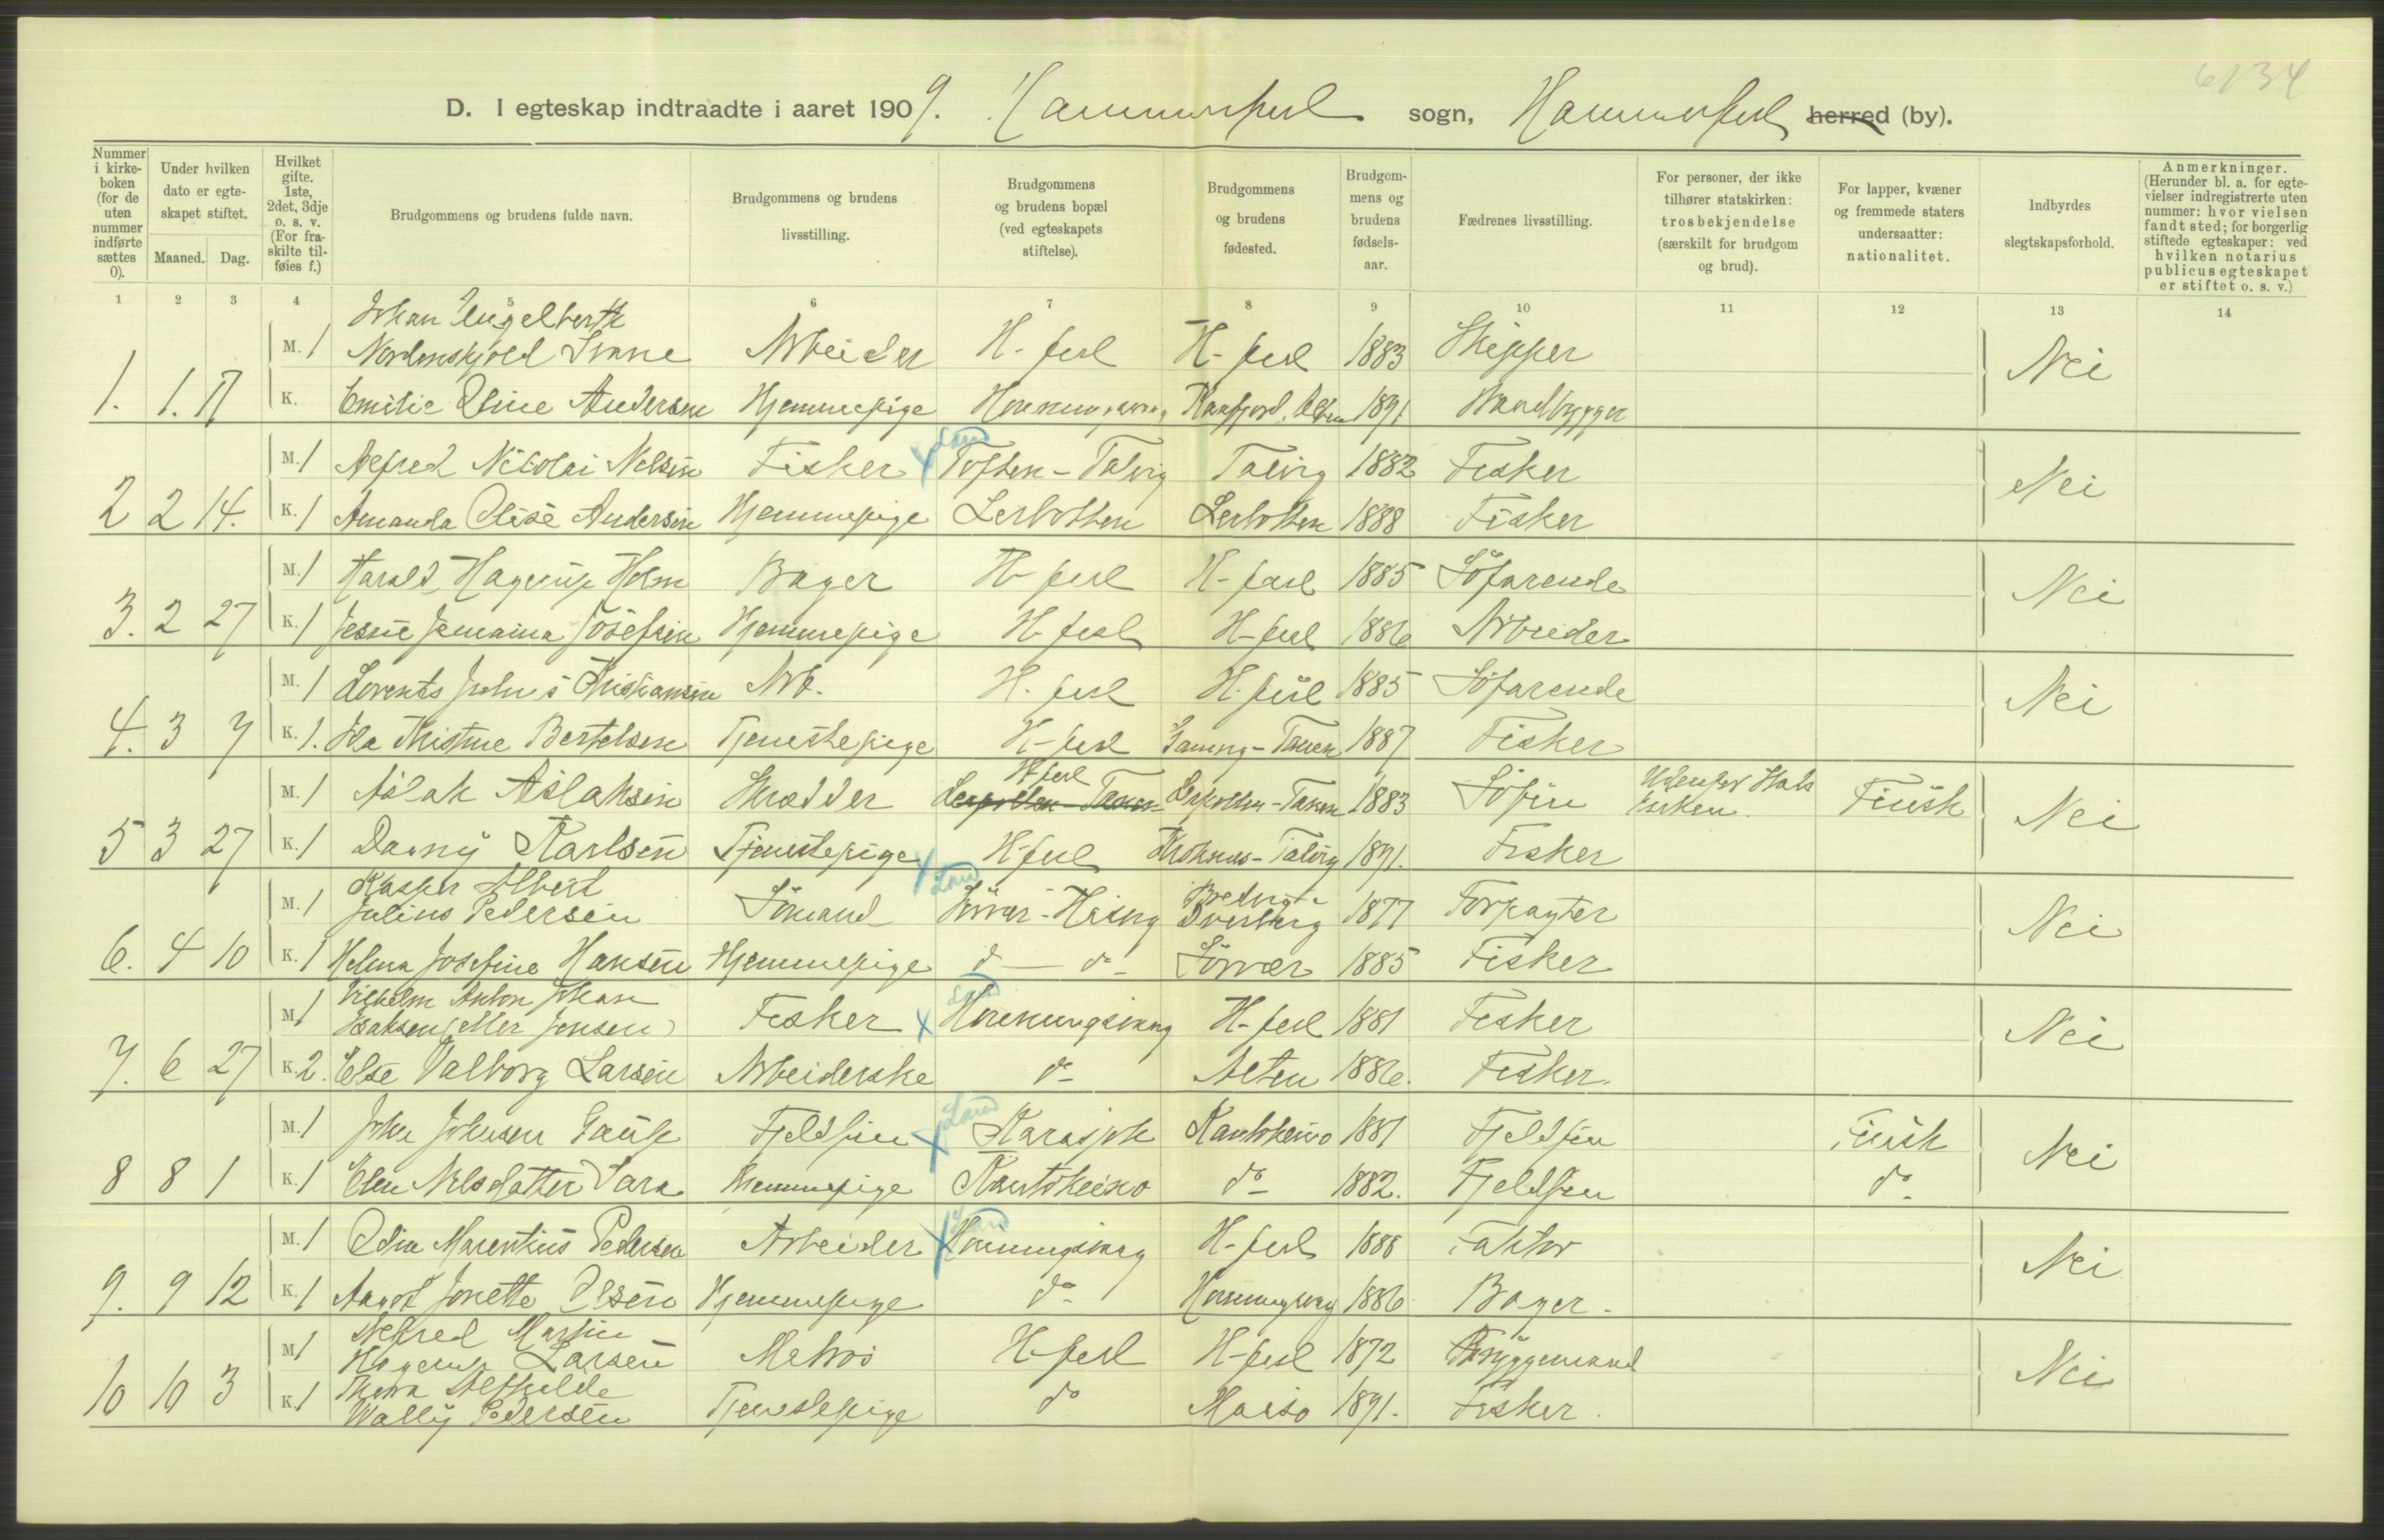 6134
D. I egteskap indtraadte i aaret 1909. Hammerfest sogn, Hammerfest herred (by).
Nummer i kirkeboken (for de uten nummer indførte sættes 0).
Under hvilken dato er egteskapet stiftet.
Maaned. Dag.
Hvilket gifte. 1ste, 2det, 3dje o. s. v. (For fraskilte tilføies f.)
Brudgommens og brudens fulde navn.
Brudgommens og brudens livsstilling.
Brudgommens og brudens bopæl (ved egteskapets stiftelse).
Brudgommens og brudens fødested.
Brudgommens og brudens fødselsaar.
Fædrenes livsstilling.
For personer, der ikke tilhører statskirken: trosbekjendelse (særskilt for brudgom og brud).
For lapper, kvæner og fremmede staters undersaatter: nationalitet.
Indbyrdes slegtskapsforhold.
Anmerkninger. (Herunder bl. a. for egtevielser indregistrerte uten nummer: hvor vielsen fandt sted; for borgerlig stiftede egteskaper: ved hvilken notarius publicus egteskapet er stiftet o. s. v.)
1 2 3 4 5 6 7 8 9 10 11 12 13 14
Johan Engelberth
M. 1 Nordenskjold Svane Arbeider H-fest H-fest 1883 Skipper Nei
1. 1. 17 K. Emilie Oline Andersen Hjemmepige Honningsvaag Kaafjord, Alten 1891 Strandbygger
Land
M. 1 Alfred Nikolai Nelsen Fisker Toften-Talvig Talvig 1882 Fisker Nei
2 2 14. K. 1 Amanda Elise Andersen Hjemmepige Lerbotten Lerbotten 1888 Fisker
M. 1 Harald Hagerup Holm Bager H-fest H-fest 1885 Söfarende Nei
3. 2 27 K. 1 Jessie Jemaina Josefsen Hjemmepige H-fest H-fest 1886 Arbeider
M. 1 Lorents Johns Kristiansen Arb. H. fest H. fest 1885 Söfarende Nei
4. 3 7 K. 1. Ida Kristine Bertelsen Tjenestepige H-fest Tanen 1887 Fisker
H-fest
M. 1 Aslak Aslaksen Skrædder Lerpollen-Tanen Lerpollen-Tanen 1883 Söfin Udenfor Stats kirken. Finsk Nei
5 3 27 K. 1 Dagny Karlsen Tjenestepige H-fest Kroknes-Talvig 1891. Fisker
Land
Kasper Albert
M. 1 Julius Pedersen Sömand Sörvær-Hasvig Bredvig Dverberg 1877 Forpagter Nei
6. 4 10 K. 1 Helena Josefine Hansen Hjemmepige do do Sörvær 1885 Fisker
Land
Vilhelm Anton Johan
M. 1 Isaksen (eller Jensen) Fisker Honningsvaag H-fest 1881 Fisker Nei
7. 6 27 K. 2. Else Valborg Larsen Arbeiderske do Alten 1886. Fisker
Land
M. 1 John Johnsen Gaup Fjeldfin Karasjok Kautokeino 1881 Fjeldfin Finsk Nei
8 8 1 K. 1 Elen Nelsdatter Sara Hjemmepige Kautokeino do 1882. Fjeldfin do
Land
M. 1 Odin Marentius Pedersen Arbeider Honningsvaag H-fest 1888 Faktor Nei
9. 9 12 K. 1 Aagot Jonette Olsen Hjemmepige do Honningsvaag 1886 Bager.
Alfred Martin
M. 1 Hagerup Larsen Matros H-fest H-fest 1872 Bryggemand Nei
10 10 3 K. 1 Thora Alfhilde Tjenestepige do Maasø 1891. Fisker.
Wally Pedersen